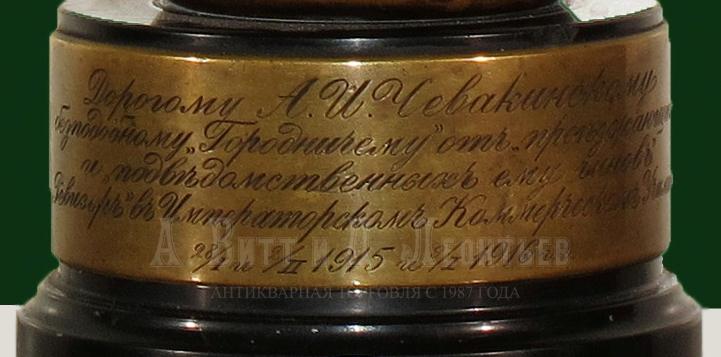 Дорогому А.И. Чевакинскому
безподобному „Городничему" отъ
и „подвѣдомственныхъ ему чиновъ"
Ревизоръ" въ Императорскомъ Коммерческомъ
1915 и 1916
А. Витт и Леонтьев
АНТИКВАРНАЯ ТОРГОВЛЯ С 1987 ГОДА